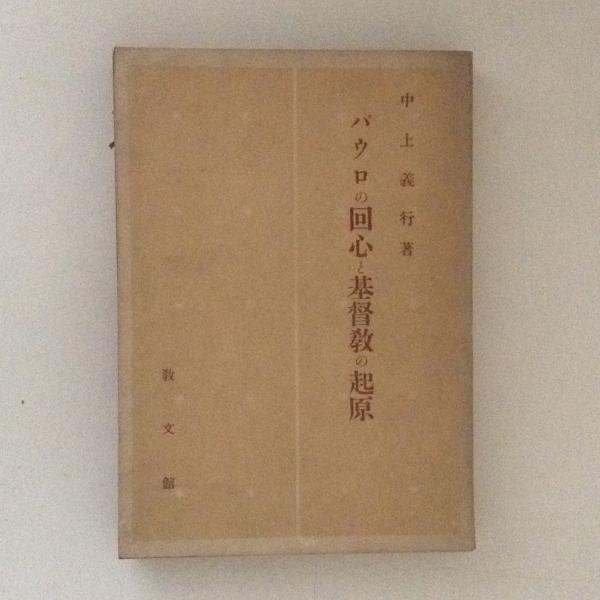 中上義行著
パウロの回心と基督教の起原
教文館